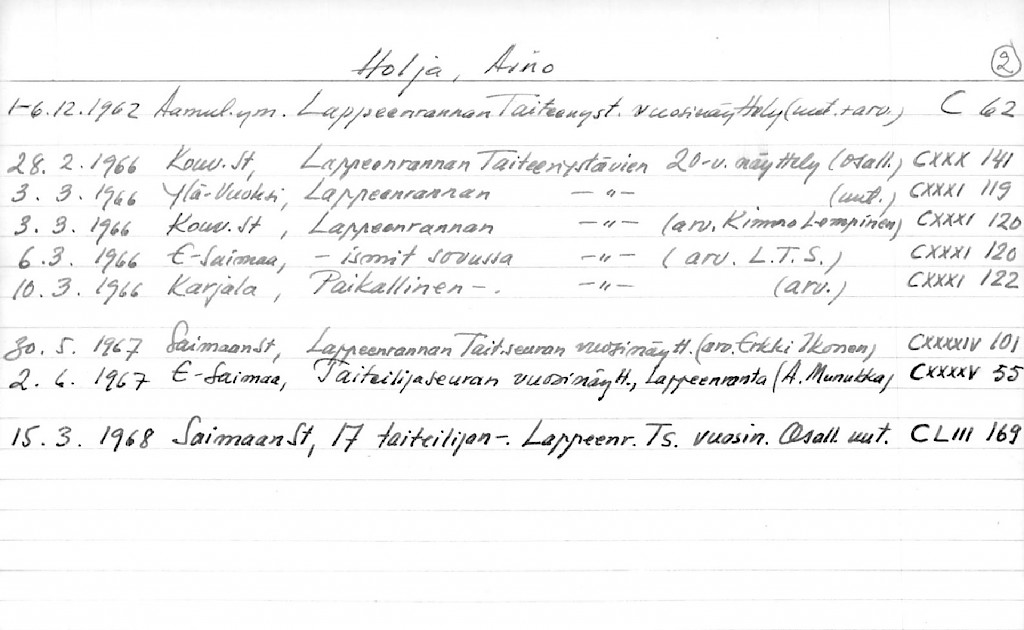 Holja, Aino 2
1-6.12.1962 Aamul.ym. Lappeenrannan Taiteenyst. vuosinäyttely (uut.+arv.) C 62
28. 2. 1966 Kouv. St, Lappeenrannan Taiteenystävien 20-v. näyttely (osall.) CXXX 141
3. 3. 1966 Ylä-Vuoksi, Lappeenrannan -"- (uut.) CXXXI 119
3. 3. 1966 Kouv. St, Lappeenrannan -"- (arv. Kimmo Lempinen) CXXXI 120
6. 3. 1966 E-Saimaa, - ismit sovussa -"- (arv. L.T.S.) CXXXI 120
10. 3. 1966 Karjala, Paikallinen -. -"- (arv.) CXXXI 122
30. 5. 1967 SaimaanSt, Lappeenrannan Tait.seuran vuosinäytt. (arv. Erkki Ikonen) CXXXXIV 101
2. 6. 1967 E-Saimaa, Taiteilijaseuran vuosinäytt., Lappeenranta (A. Munukka) CXXXXV 55
15. 3. 1968 SaimaanSt, 17 taiteilijan -. Lappeenr. Ts. vuosin. Osall. uut. CLIII 169